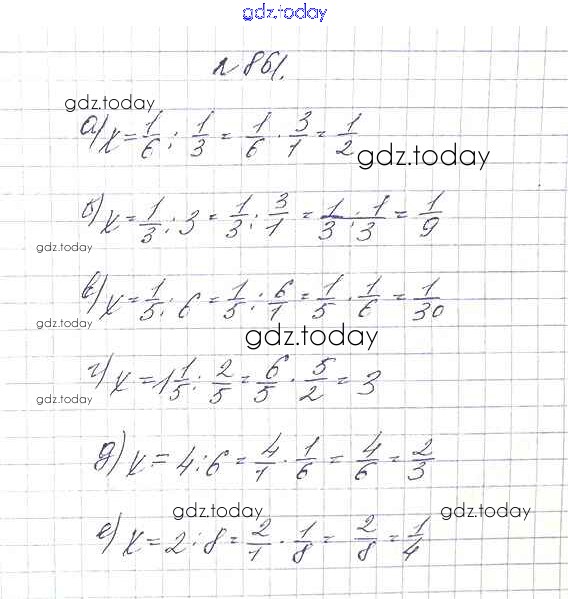 gdz.today
№861.
gdz.today
а) x = 1/6 : 1/3 = 1/6 · 3/1 = 1/2
gdz.today
б) x = 1/3 : 3 = 1/3 : 3/1 = 1/3 · 1/3 = 1/9
gdz.today
в) x = 1/5 : 6 = 1/5 : 6/1 = 1/5 · 1/6 = 1/30
gdz.today
gdz.today
г) x = 1 1/5 : 2/5 = 6/5 · 5/2 = 3
gdz.today
д) x = 4 : 6 = 4/1 · 1/6 = 4/6 = 2/3
gdz.today gdz.today
е) x = 2 : 8 = 2/1 · 1/8 = 2/8 = 1/4